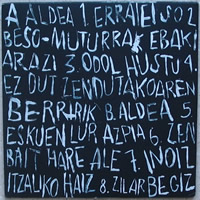 A ALDEA 1. ERRAIEI SO 2.
BESO-MUTURRAK EBAKI
ARAZI 3. ODOL HUSTU 4.
EZ DUT ZENDUTAKOAREN
BERRIRIK B. ALDEA 5.
ESKUEN LUR AZPIA 6. ZEN
BAIT HARE ALE 7. NOIZ
ITZALIKO HAIZ 8. ZILAR BEGIZ